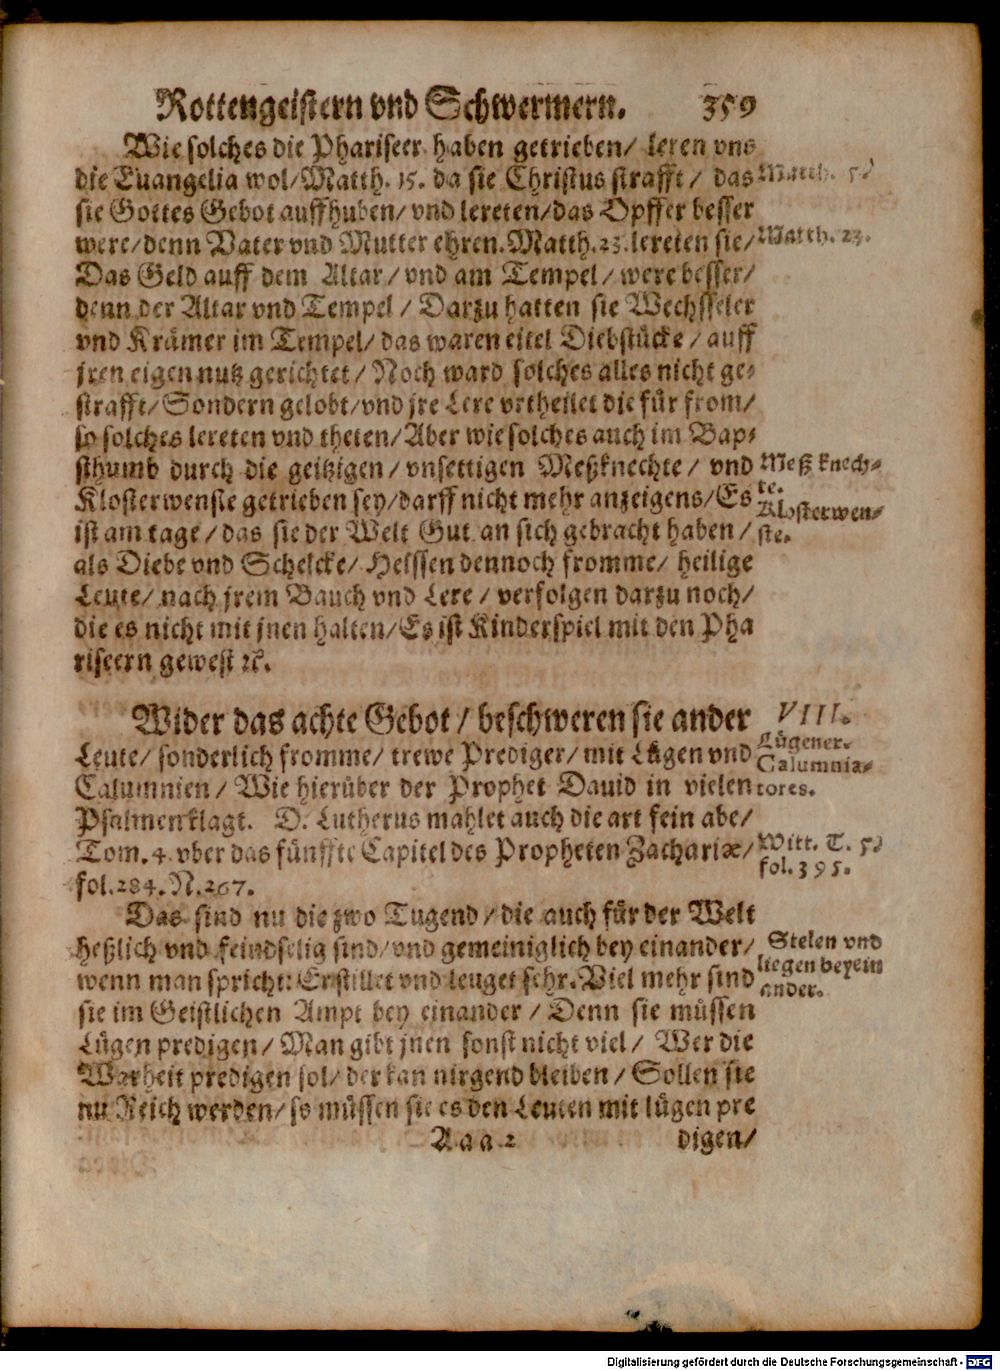 Rottengeistern vnd Schwermern. 359
Wie solches die Phariseer haben getrieben/ leren vns
die Euangelia wol/Matth. 15. da sie Christus strafft/ das
sie Gottes Gebot auffhuben/ vnd lereten/das Opffer besser
were/denn Vater vnd Mutter ehren. Matth. 23. lereten sie/
Matth. 23.
Das Geld auff dem Altar/ vnd am Tempel/ were besser/
denn der Altar vnd Tempel/ Darzu hatten sie Wechsseler
vnd Krämer im Tempel/ das waren eitel Diebstücke/ auff
jren eigen nutz gerichtet/ Noch ward solches alles nicht ge-
strafft/ Sondern gelobt/vnd jre Lere vrtheilet die für from/
so solches lereten vnd theten/Aber wie solches auch im Bap-
sthumb durch die geitzigen/ vnsettigen Meßknechte/ vnd
Meß knech-
te.
Klosterwenste getrieben sey/darff nicht mehr anzeigens/Es
Klosterwen-
ste.
ist am tage/ das sie der Welt Gut an sich gebracht haben/
als Diebe vnd Schelcke/ Heissen dennoch fromme/ heilige
Leute/ nach jrem Bauch vnd Lere/ verfolgen darzu noch/
die es nicht mit jnen halten/Es ist Kinderspiel mit den Pha
riseern gewest ꝛc.
Wider das achte Gebot/ beschweren sie ander
VIII.
Leute/ sonderlich fromme/ trewe Prediger/ mit Lügen vnd
Lügener.
Calumnia-
tores.
Calumnien/ Wie hierüber der Prophet Dauid in vielen
Psalmen klagt. D. Lutherus mahlet auch die art fein abe/
Tom. 4. vber das fünffte Capitel des Propheten Zachariæ/
Witt. T. 5.
fol. 395.
fol. 284. N. 267.
Das sind nu die zwo Tugend/ die auch für der Welt
heßlich vnd feindselig sind/ vnd gemeiniglich bey einander/
Stelen vnd
liegen beyein
ander.
wenn man spricht: Er stillet vnd leuget sehr. Viel mehr sind
sie im Geistlichen Ampt bey einander/ Denn sie müssen
Lügen predigen/ Man gibt jnen sonst nicht viel/ Wer die
Warheit predigen sol/ der kan nirgend bleiben/ Sollen sie
nu Reich werden/ so müssen sie es den Leuten mit lügen pre
Aaa 2 digen/
Digitalisierung gefördert durch die Deutsche Forschungsgemeinschaft - DFG